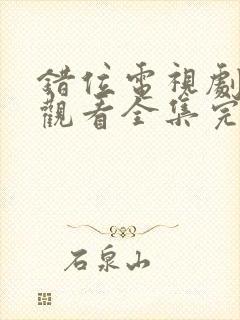 錯位電視劇
觀看全集完
石泉山